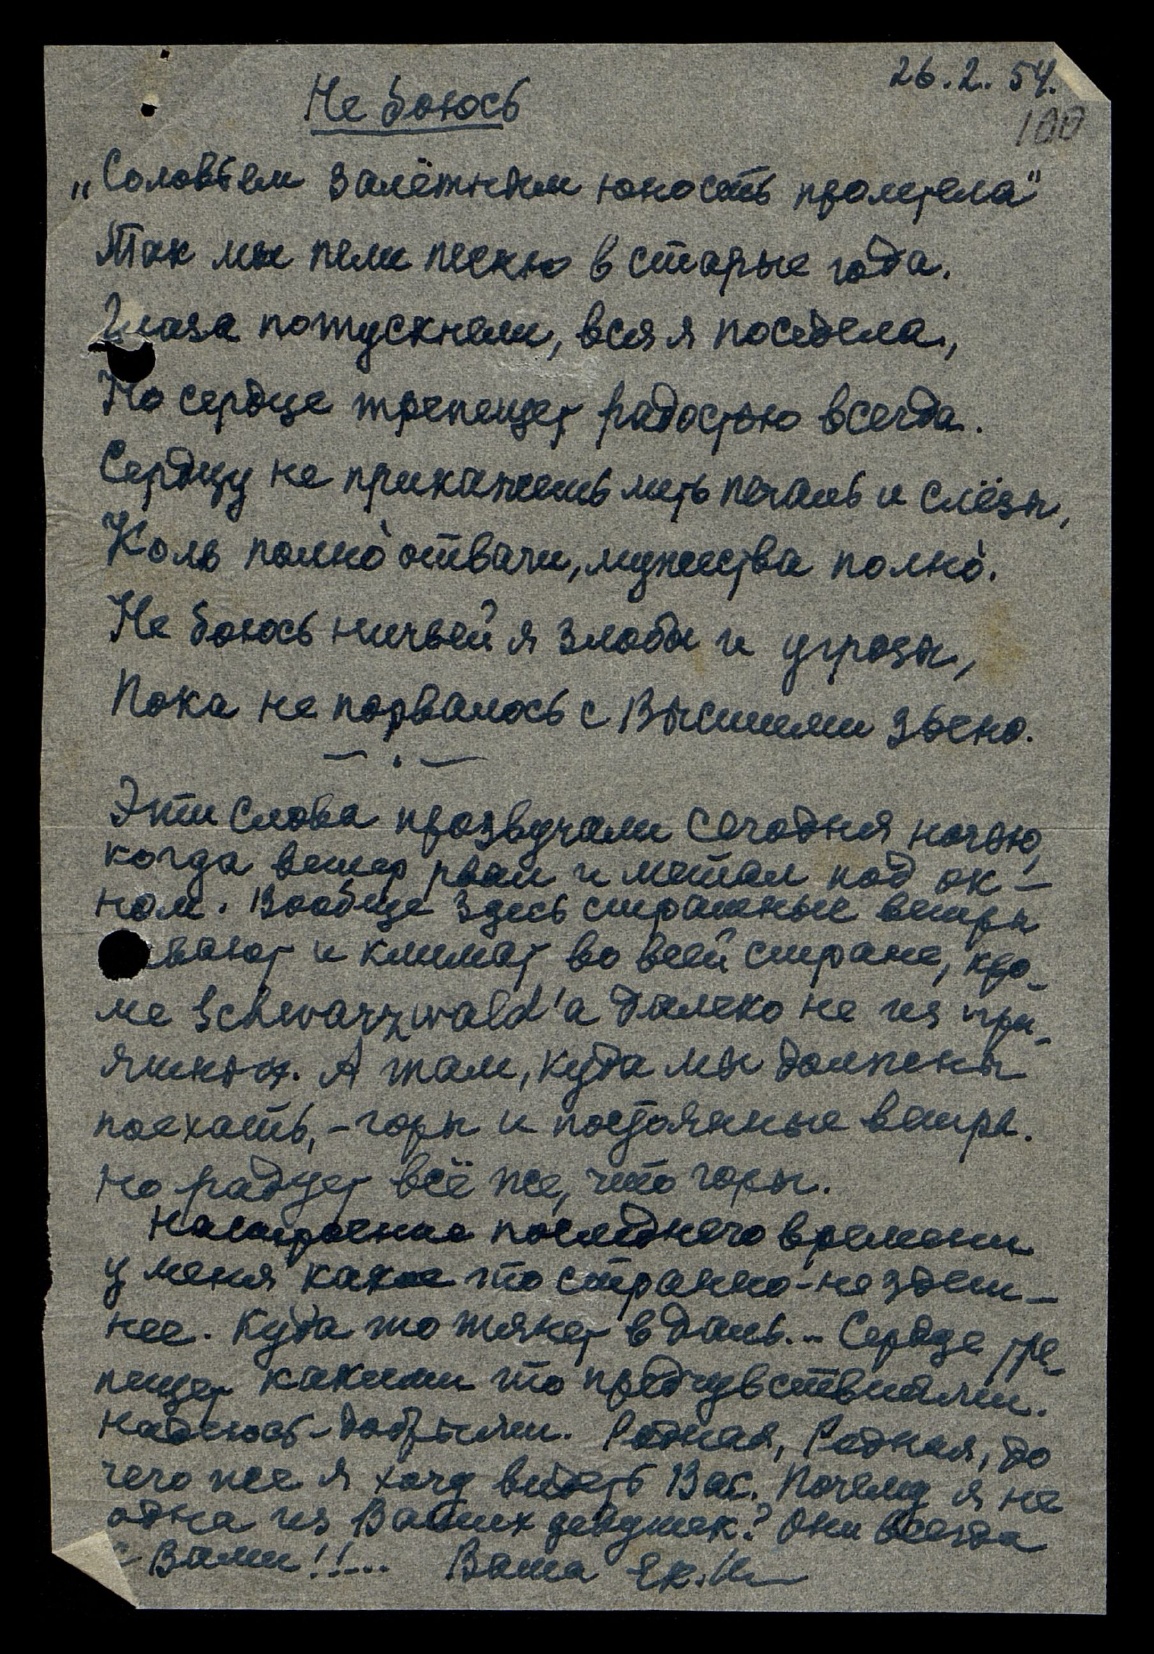 26.2.54.
100
Не боюсь
„Соловьем залётным юность пролетела"
Так мы пели песню в старые года.
Глаза потускнели, вся я поседела,
Но сердце трепещет радостью всегда.
Сердцу не прикажешь лить печаль и слёзы,
Коль полно́ отваги, мужества полно́.
Не боюсь ничьей я злобы и угрозы,
Пока не порвалось с Высшими звено.
Эти слова прозвучали сегодня ночью,
когда ветер рвал и метал под ок-
ном. Вообще здесь страшные ветры
вают и климат во всей стране, кро-
ме Schwarzwald'а далеко не из при-
ятных. А там, куда мы должны
поехать, - горы и постоянные ветры.
Но радует всё же, что горы.
Настроение последнего времени
у меня какое то странно-нездеш-
нее. Куда то тянет в даль... Сердце тре-
пещет какими то предчувствиями.
Надеюсь - добрыми. Родная, Родная, до
чего же я хочу видеть Вас. Почему я не
одна из Ваших девушек? Они всегда
с Вами!!... Ваша Ек.